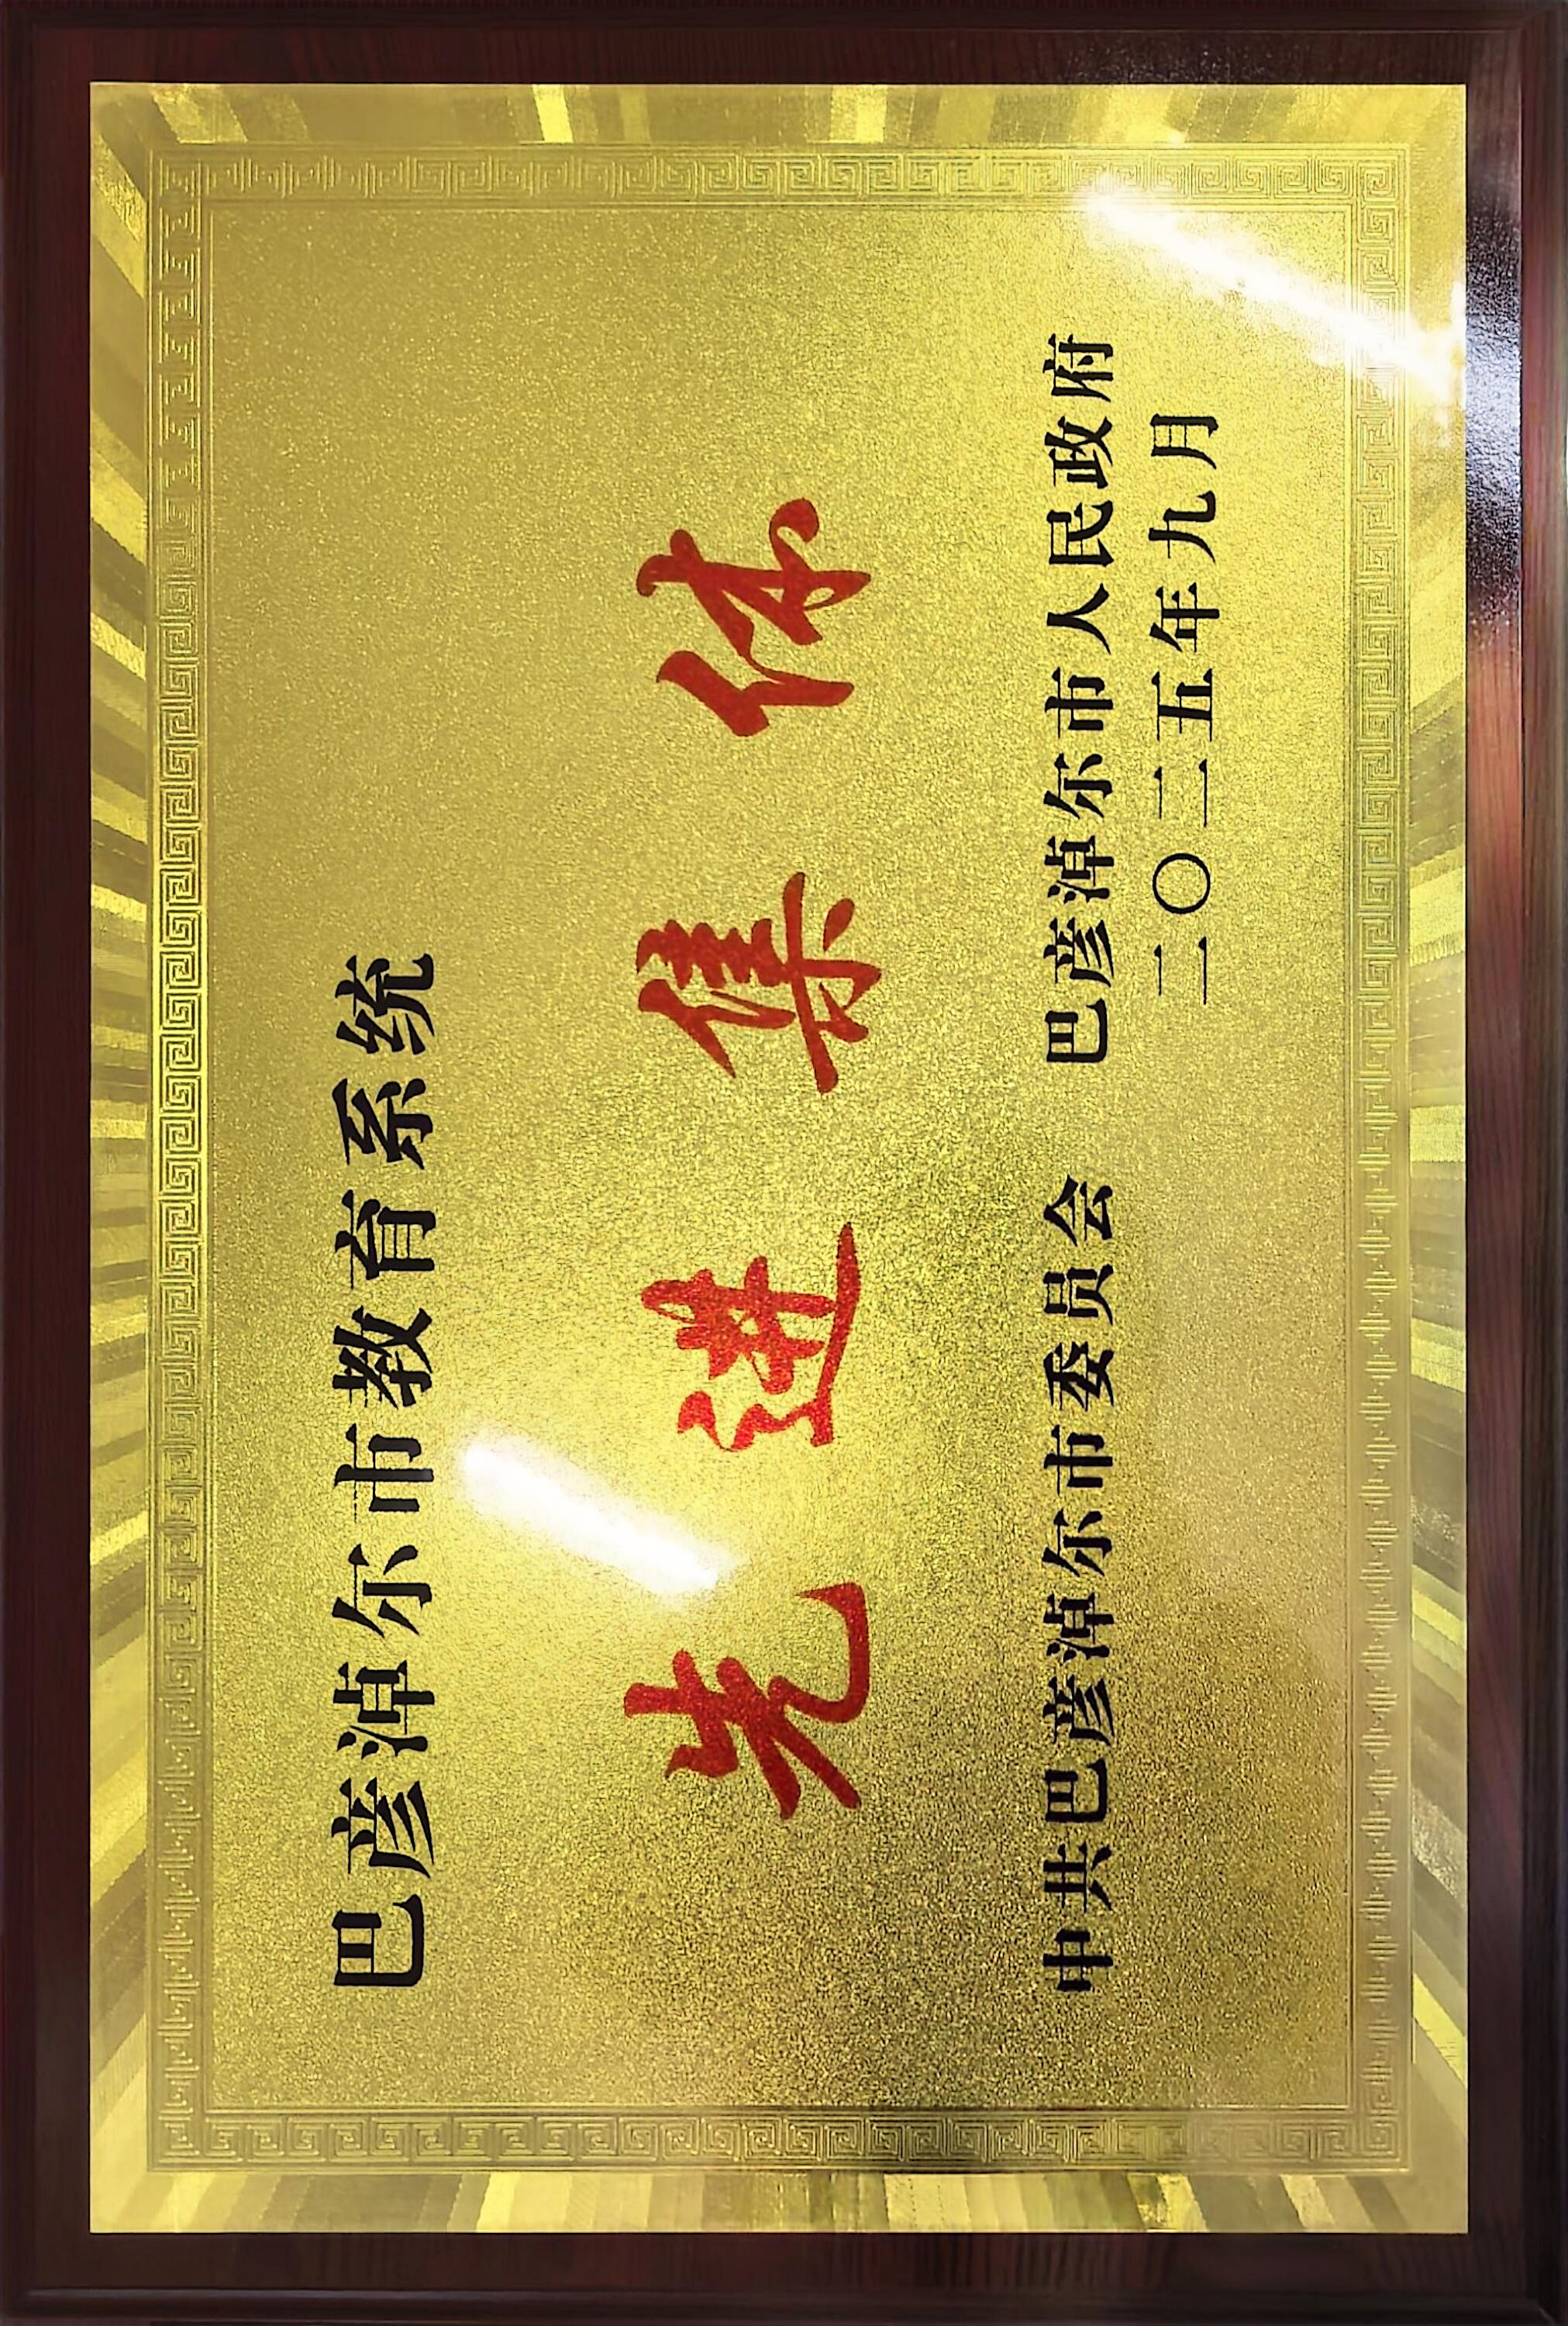 巴彦淖尔市教育系统
先进集体
中共巴彦淖尔市委员会 巴彦淖尔市人民政府
二〇二五年九月